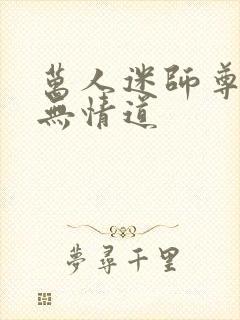 萬人迷師尊
無情道
夢尋千里